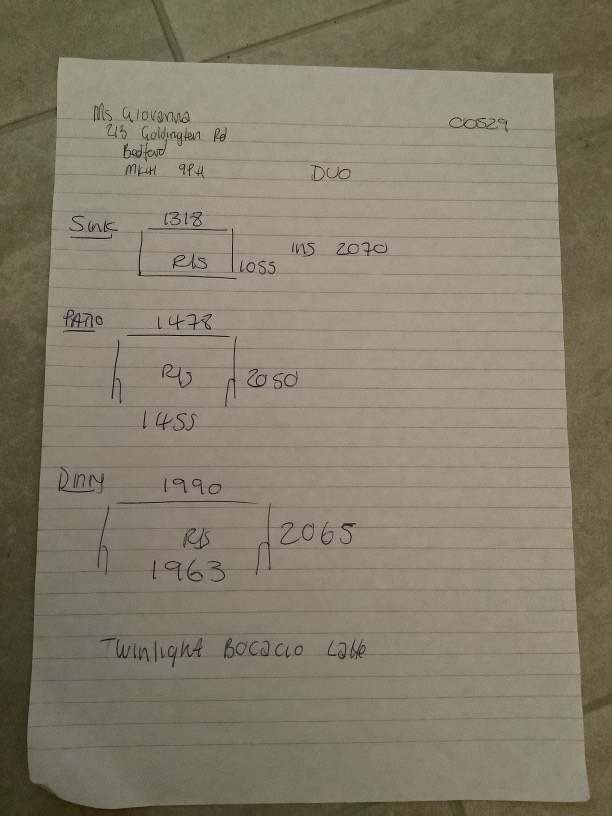 Ms Giovanna
C0529
213 Goldington Rd
Bedford
9PH
DUO
Sink
1318
R/S
1055
ins 2070
PATIO
1478
R/S
2050
1455
1990
R/S
2065
1963
Twinlight Bocacio Latte